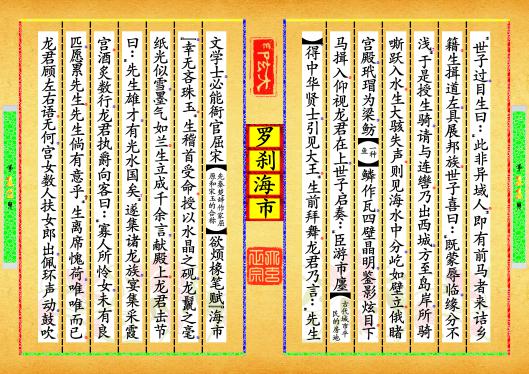 世子过目生曰：此非异域人，即有前马者来诘乡
籍生揖道左具展邦族世子喜曰：既蒙辱临缘分不
浅于是授生骑请与连辔乃出西城方至岛岸所骑
嘶跃入水生大骇失声则见海水中分屹如壁立俄睹
宫殿玳瑁为梁鲂【一种鱼】鳞作瓦四壁晶明鉴影炫目下
马揖入仰视龙君在上世子启奏：臣游市廛【古代城市平民的房地
】得中华贤士引见大王，生前拜舞龙君乃言：先生
罗刹海市
文学士必能衙官屈宋【先秦楚辞作家屈原和宋玉的合称】欲烦椽笔赋『海市
』幸无吝珠玉，生稽首受命授以水晶之砚龙鬣之毫
纸光似雪墨气如兰生立成千余言献殿上龙君击节
曰：先生雄才有光水国矣，遂集诸龙族宴集采霞
宫酒炙数行龙君执爵向客曰：寡人所怜女未有良
匹愿累先生先生倘有意乎，生离席愧荷唯唯而已
龙君顾左右语无何宫女数人扶女郎出佩环声动鼓吹